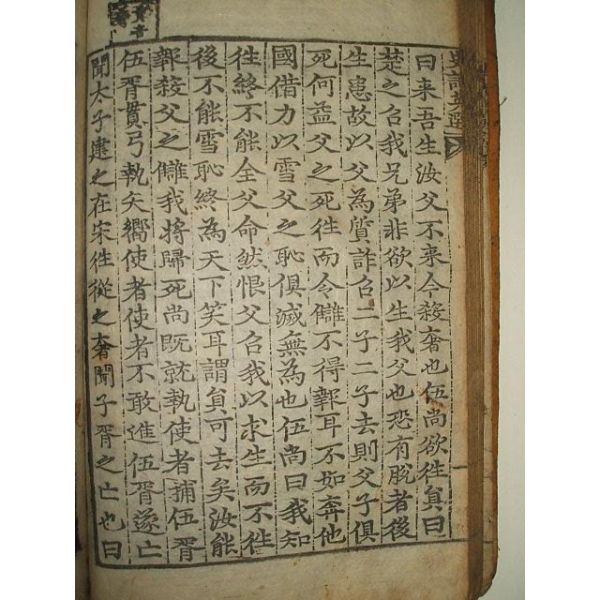 史記英選
曰来吾生汝父不来今殺奢也伍尚欲徃貟曰
楚之召我兄弟非欲以生我父也恐有脫者後
生患故以父為質詐召二子二子去則父子俱
死何益父之死徃而令讎不得報耳不如奔他
國借力以雪父之恥俱滅無為也伍尚曰我知
徃終不能全父命然恨父召我以求生而不徃
後不能雪恥終為天下笑耳謂貟可去矣汝能
報殺父之讎我將歸死尚既就執使者捕伍胥
伍胥貫弓執矢嚮使者使者不敢進伍胥遂亡
聞太子建之在宋徃從之奢聞子胥之亡也曰